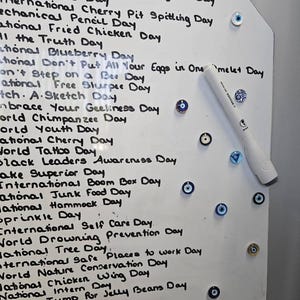 International Cherry Pit Spitting Day
Mechanical Pencil Day
ational Fried Chicken Day
ll the Truth Day
ational Blueberry Day
ational Don't Put All Your Eggs in One melet Day
on't Step on a Bee Day
ational Free Slurpee Day
tch. A. Sketch Day
mbrace Your Geekiness Day
orld Chimpanzee Day
orld Youth Day
ational Cherry Day
World Tattoo Day
Black Leaders Awareness Day
ake Superior Day
International Boom Box Day
National Junk Food Day
National Hammock Day
prinkle Day
International Self Care Day
World Drowning Prevention Day
National Tree Day
nternational Safe Places to work Day
World Nature Conservation Day
National Chicken Wing Day
National Intern Day
for Jelly Beans Day